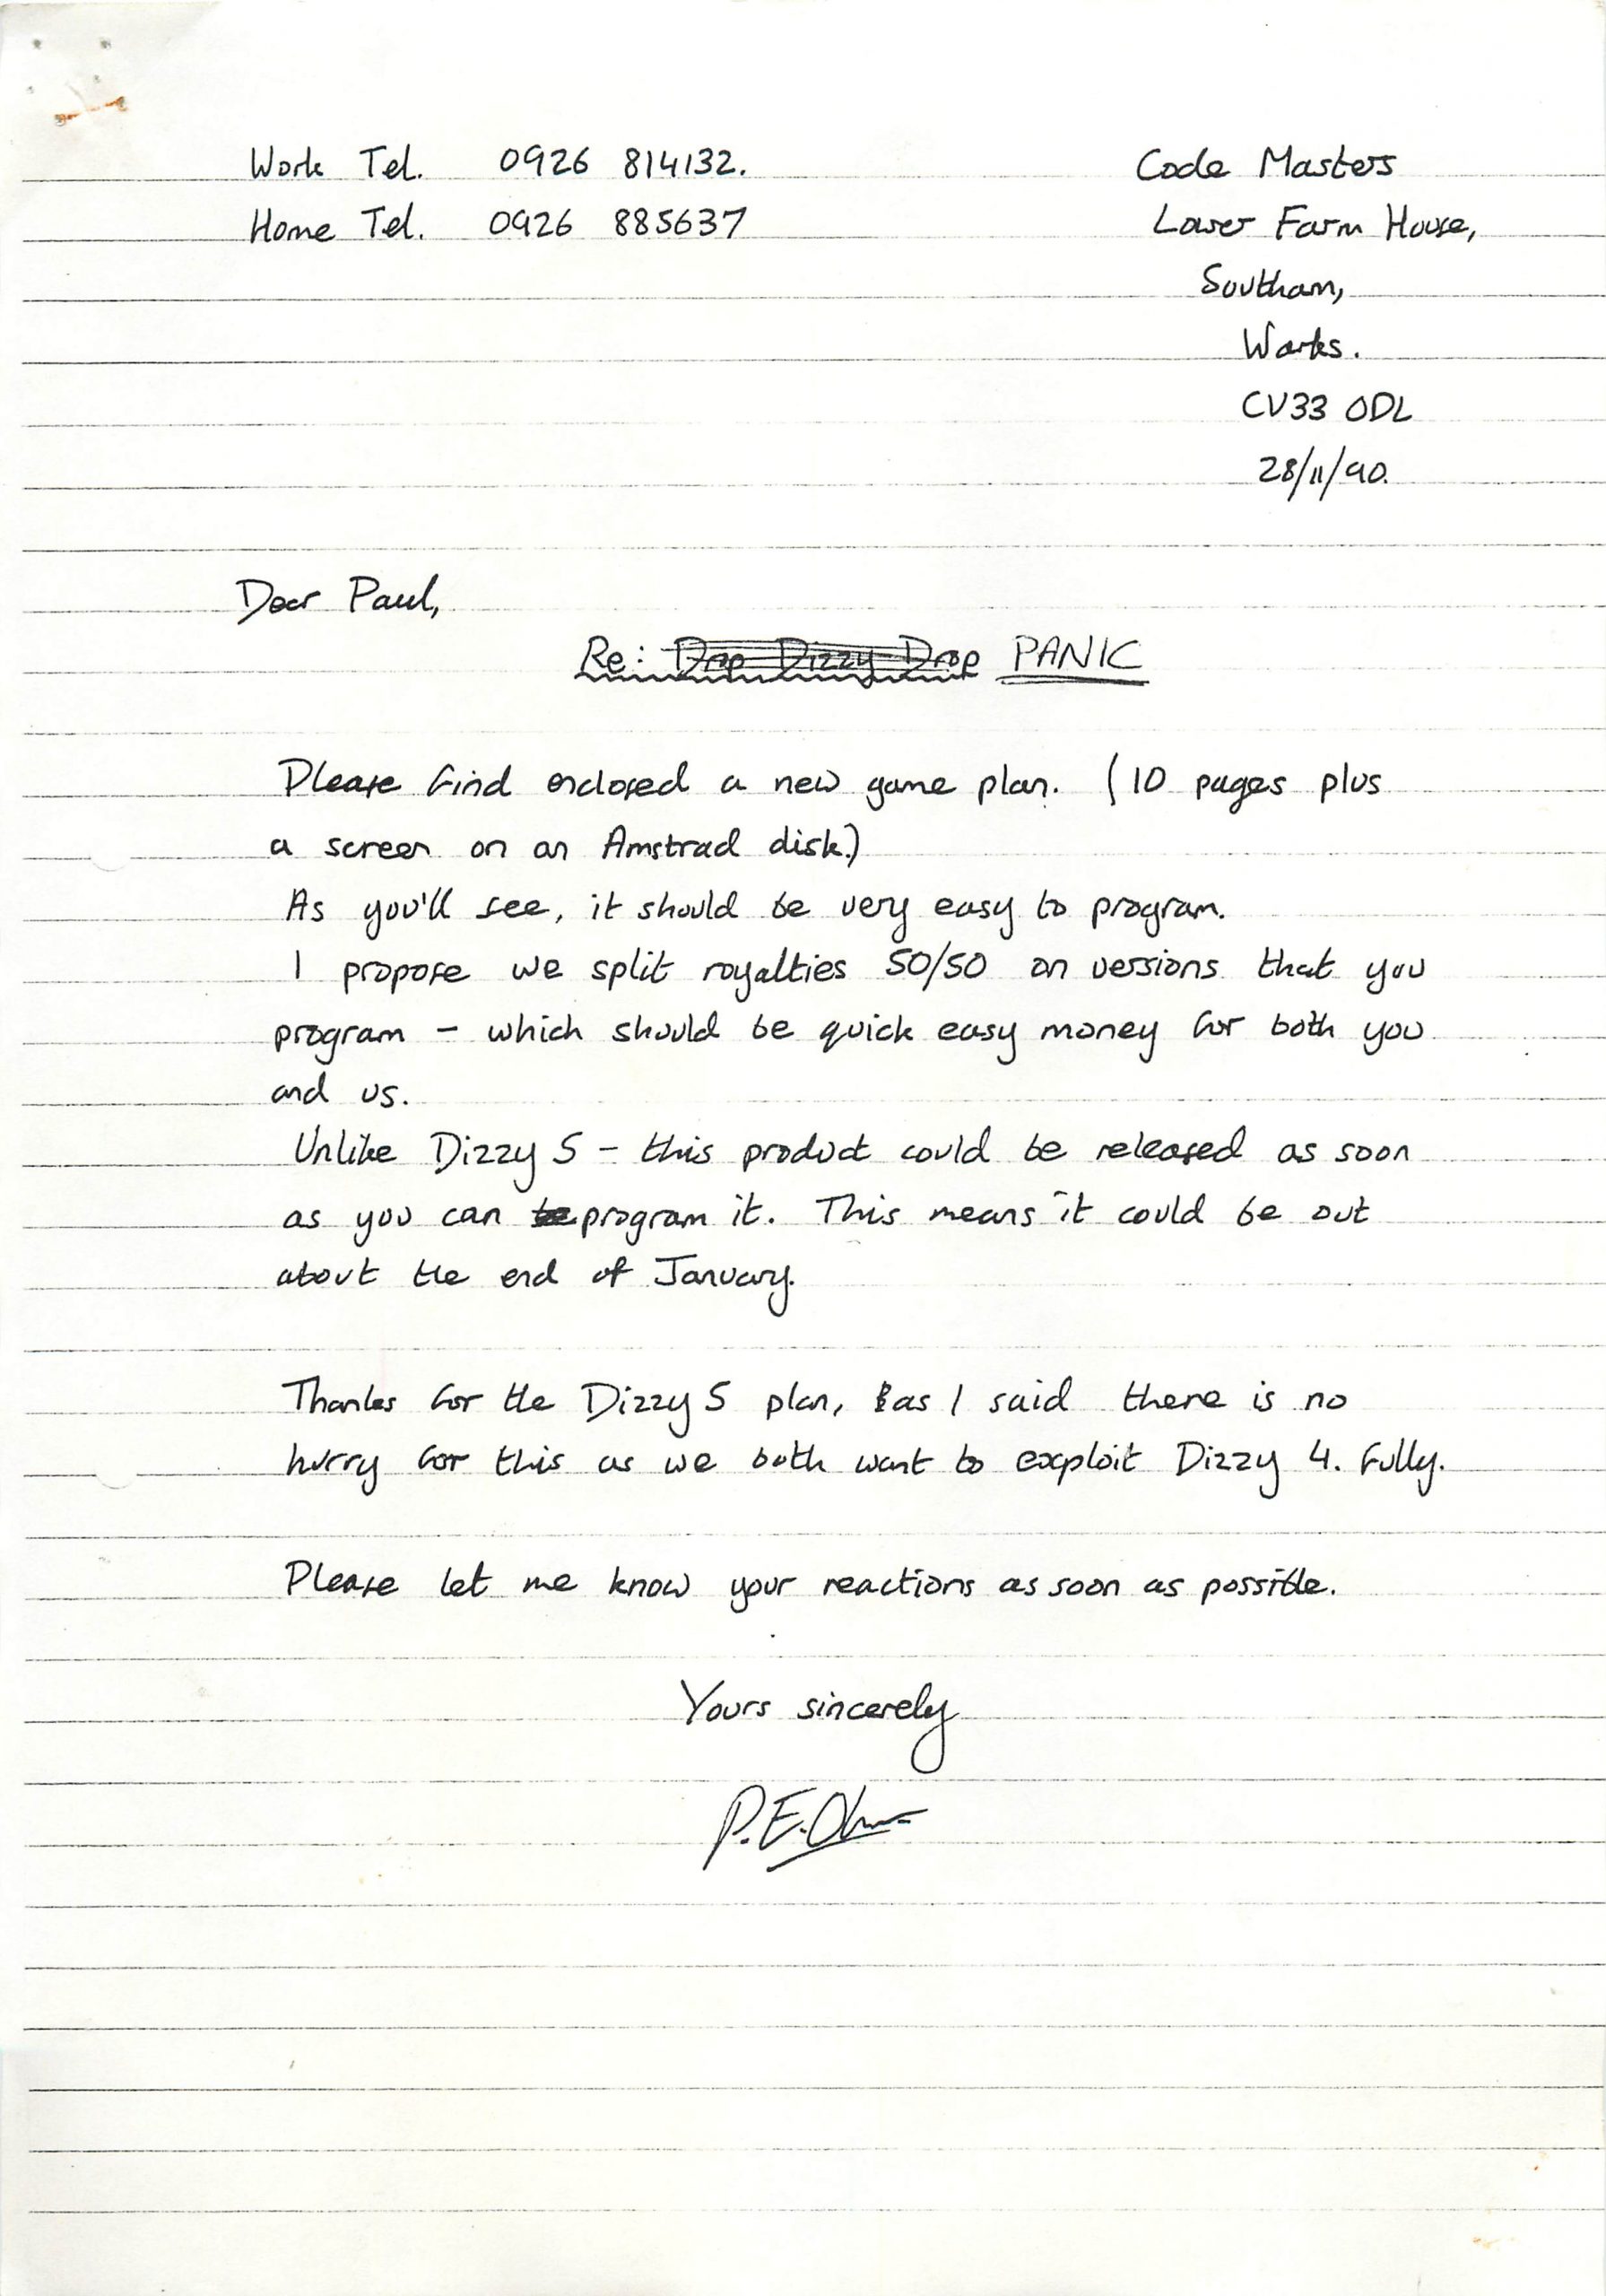 Work Tel. 0926 814132.
Home Tel. 0926 885637
Code Masters
Lower Farm House,
Southam,
Warks.
CV33 0DL
28/11/90.
Dear Paul,
Re: Drop Dizzy Drop PANIC
Please find enclosed a new game plan. (10 pages plus
a screen on an Amstrad disk.)
As you'll see, it should be very easy to program.
I propose we split royalties 50/50 on versions that you
program - which should be quick easy money for both you
and us.
Unlike Dizzy 5 - this product could be released as soon
as you can be program it. This means it could be out
about the end of January.
Thanks for the Dizzy 5 plan, as I said there is no
hurry for this as we both want to exploit Dizzy 4. fully.
Please let me know your reactions as soon as possible.
Yours sincerely
P.E.